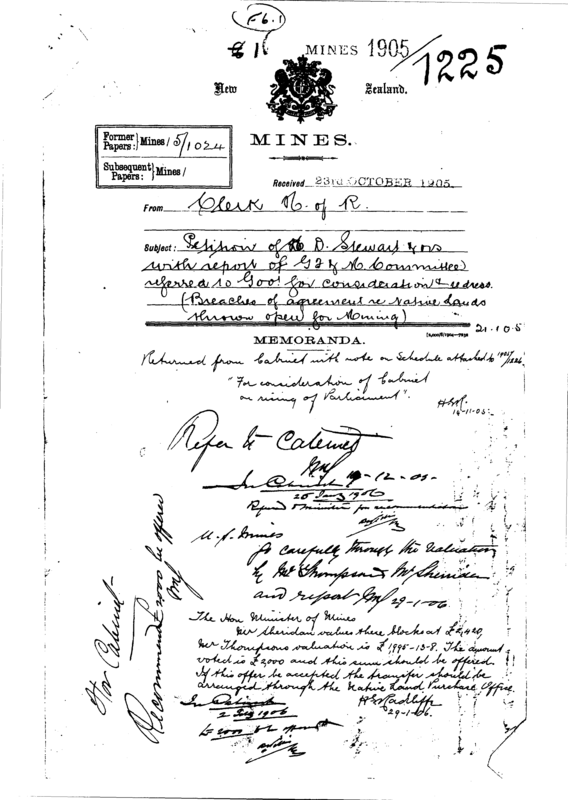 F6.1
MINES 1905/1225
New Zealand.
MINES.
Former Papers: Mines/ 5/1024
Subsequent Papers: Mines/
Received 23rd OCTOBER 1905.
From Clerk H. of R.
Subject: Petition of D. Stewart & ors
with report of G F & M Committee
referred to Govt for consideration & redress.
(Breaches of agreement re Native Lands
thrown open for Mining)
21.10.5
MEMORANDA.
Returned from Cabinet with note on Schedule attached to
"For consideration of Cabinet
on rising of Parliament".
14-11-05.
Refer to Cabinet
-12-05-
In Cabinet
25 Jany 1906
Refd to Minister for recommendation
U. S. Mines
Go carefully through the valuation
by Mr Thompson & Mr Sheridan
and report
29-1-06
The Hon Minister of Mines
Mr Sheridan values these blocks at £2,420,
Mr Thompson's valuation is £1995-13-8. The amount
voted is £2000 and this sum should be offered.
If this offer be accepted the transfer should be
arranged through the Native Land Purchase Office.
H S Radcliffe
29-1-06.
For Cabinet
Recommend £2000 be offered
In Cabinet
2 Feby 1906
£2000 be